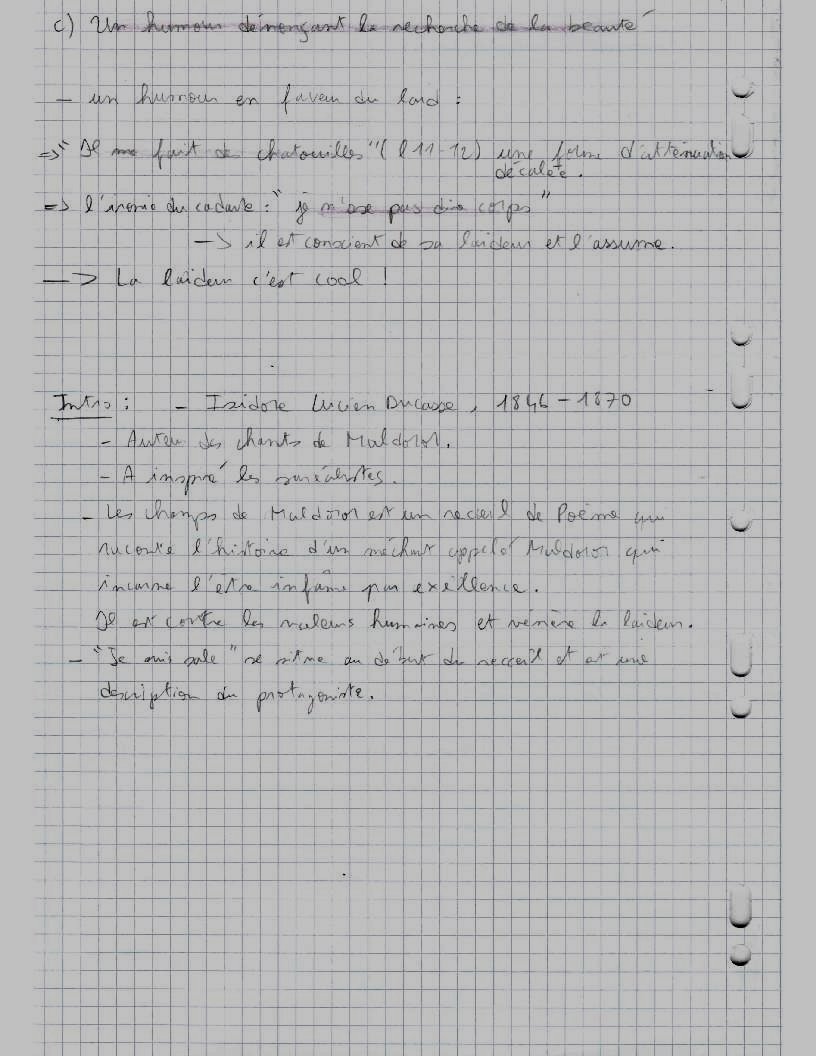 c) Un humour dénonçant la recherche de la beauté
- un humour en faveur du laid :
=> "Il me fait des chatouilles" (l 11-12) une forme d'atténuation
décalée.
=> l'ironie du cadavre : "je n'ose pas dire corps"
-> il est conscient de sa laideur et l'assume.
-> La laideur c'est cool !
Intro : - Isidore Lucien Ducasse, 1846-1870
- Auteur des chants de Maldoror.
- A inspiré les suréalistes.
- Les champs de Maldoror est un recueil de Poème qui
raconte l'histoire d'un méchant appelé Maldoror qui
incarne l'être infâme par exéllence.
Il est contre les valeurs humaines et vénère la laideur.
- "Je suis sale" se situe au début du reccueil et est une
description du protagoniste.